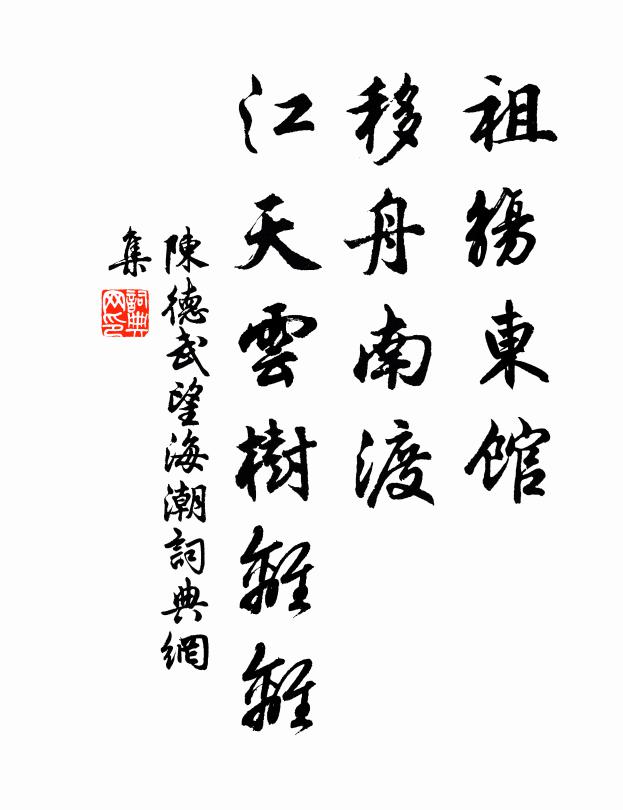 祖觴東館
移舟南渡
江天雲樹離離
陳德武望海潮詞典網
集
詞典
网印